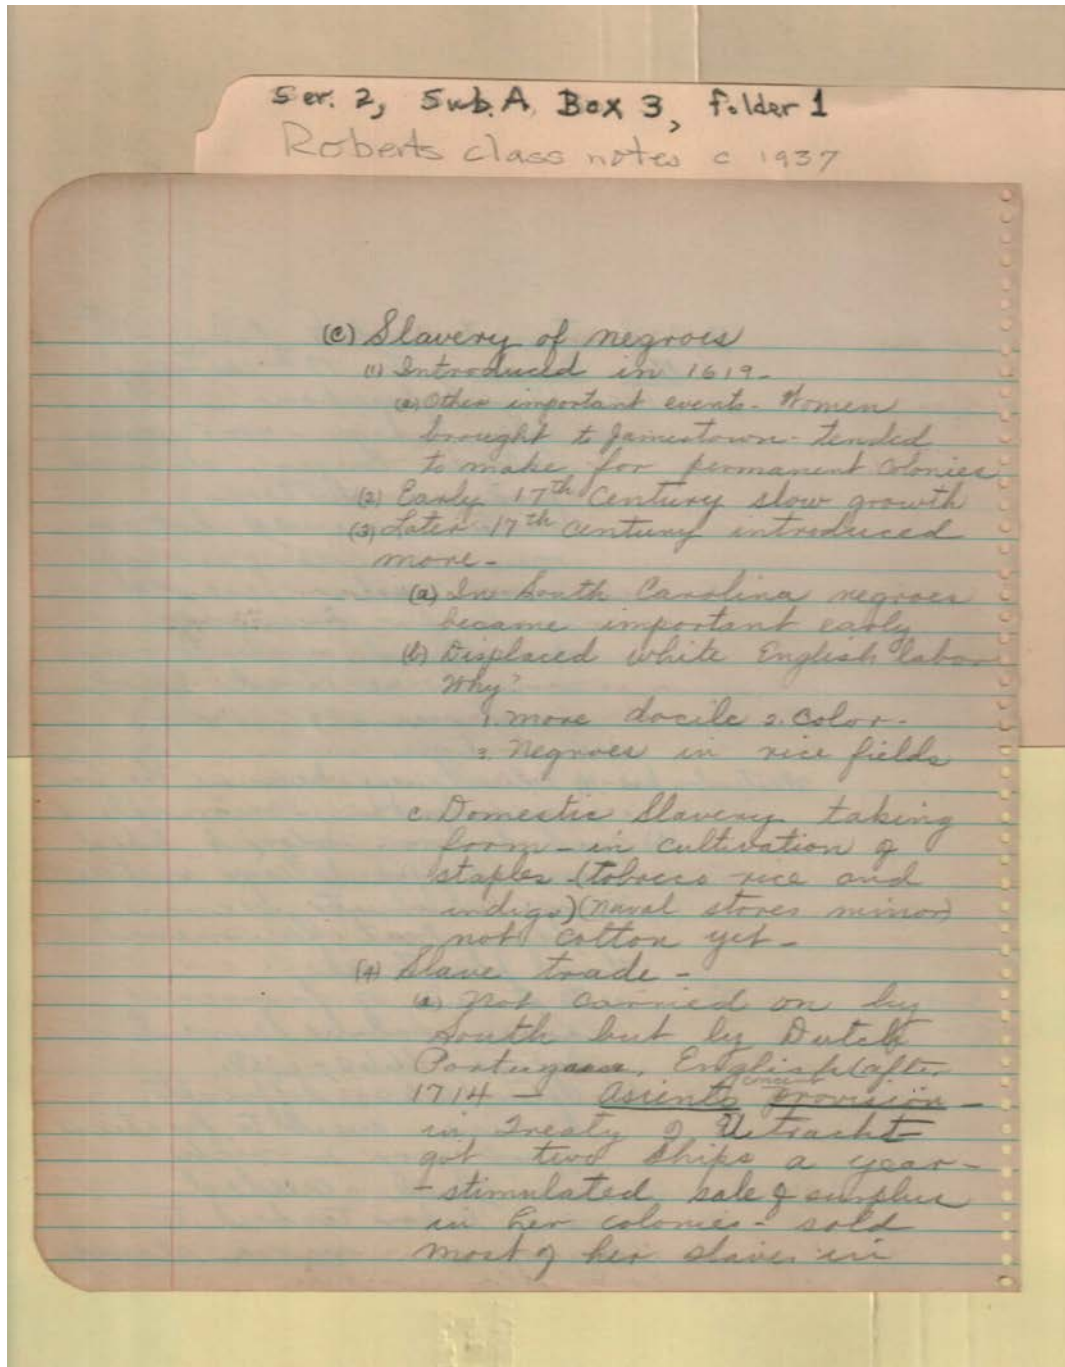 Ser. 2, Sub. A, Box 3, folder 1
Roberts class notes c 1937
(c) Slavery of negroes
(1) Introduced in 1619-
(a) Other important events- Women
brought to Jamestown- tended
to make for permanent colonies
(2) Early 17th Century slow growth
(3) Later 17th Century introduced
more-
(a) In South Carolina negroes
became important early
(b) Displaced white English labor
Why?
1. more docile 2. Color-
3. Negroes in rice fields
c. Domestic Slavery taking
form - in cultivation of
staples (tobacco rice and
indigo) (naval stores minor)
not cotton yet-
(4) Slave trade -
(a) Not carried on by
South but by Dutch
English (after
1714 - Asiento provision -
in Treaty of Utracht-
got two ships a year-
- stimulated sale of surplus
in her colonies- sold
most of her slaves in